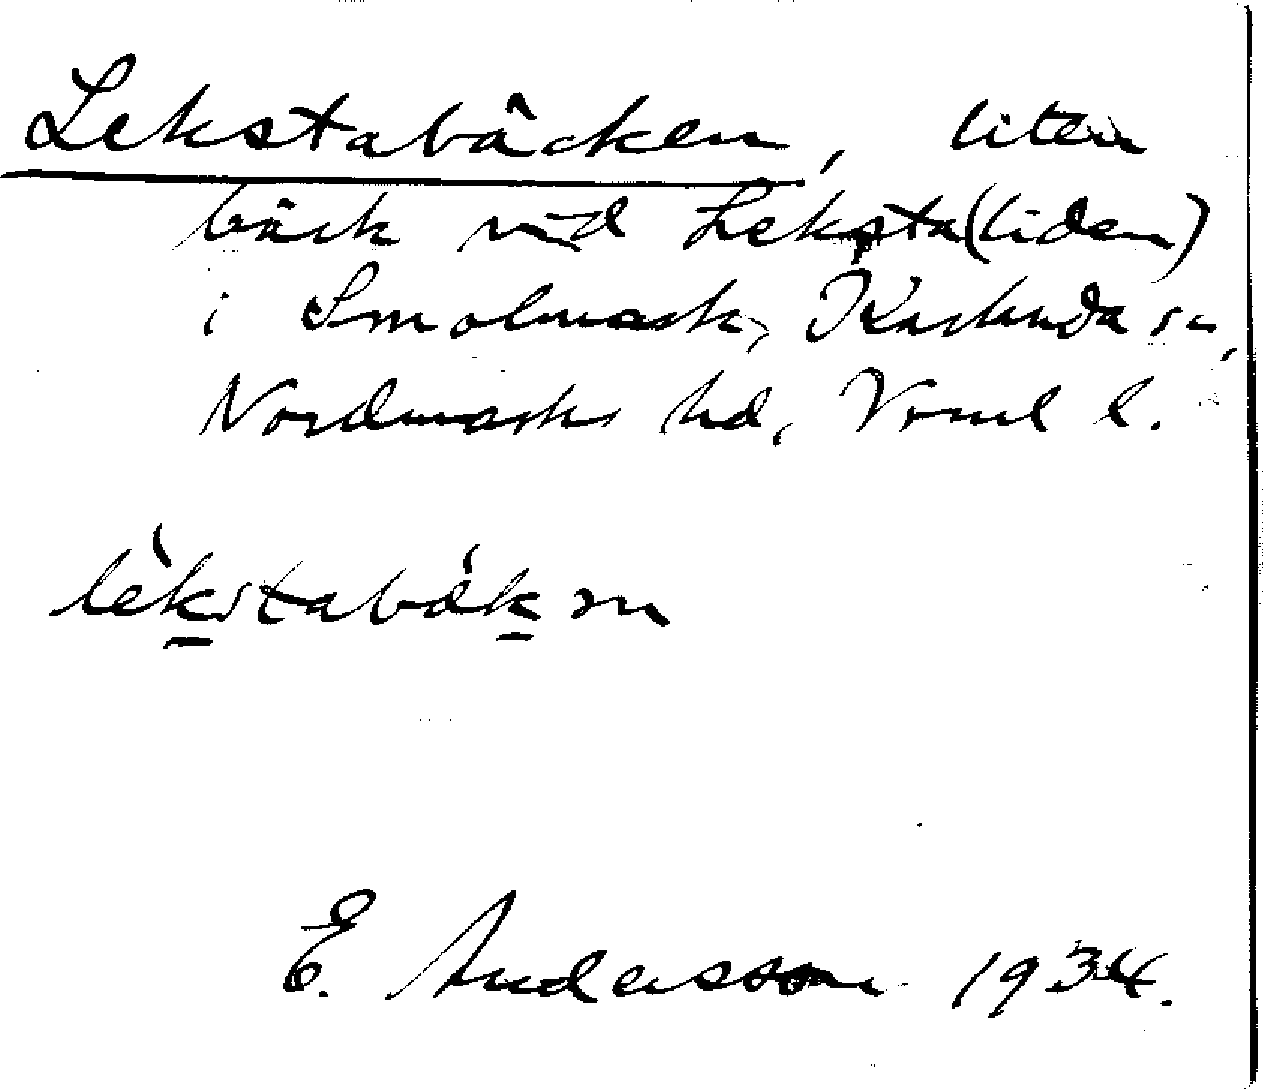 Lekstabäcken, liten
bäck vid Leksta(liden)
i Smolmark, Karlanda sn,
Nordmarks hd, Vrml l.
lèkstabák m
E. Andersson 1934.